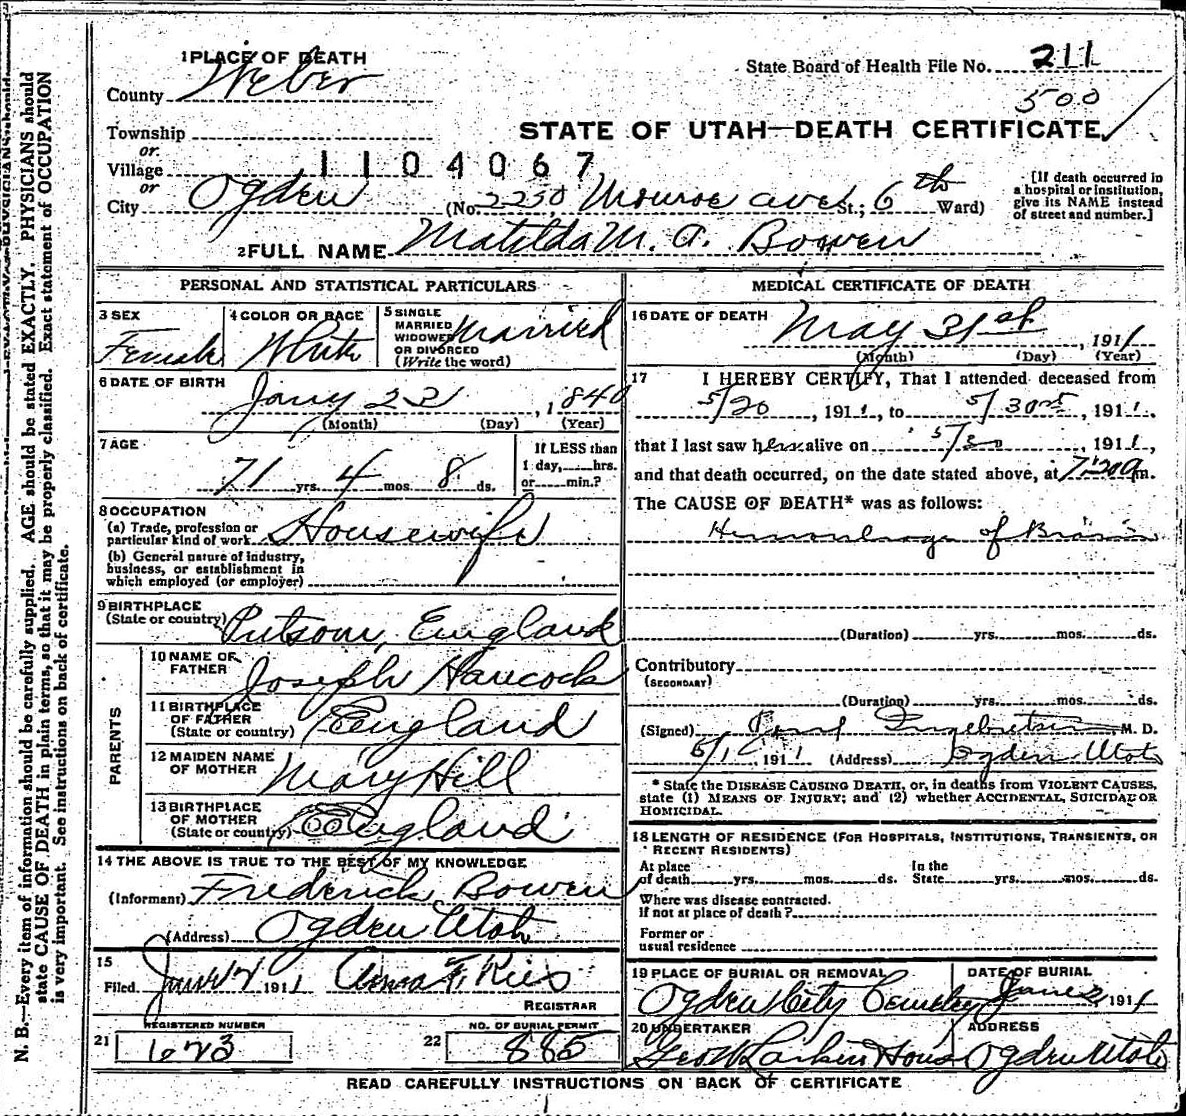 1 PLACE OF DEATH
County Weber
State Board of Health File No. 211
500
Township
or
Village
1104067
STATE OF UTAH—DEATH CERTIFICATE
or
City Ogden (No. 2250 Monroe ave St.; 6th Ward)
[If death occurred in a hospital or institution, give its NAME instead of street and number.]
2 FULL NAME Matilda M. A. Bowen
PERSONAL AND STATISTICAL PARTICULARS
3 SEX Female
4 COLOR OR RACE White
5 SINGLE MARRIED WIDOWED OR DIVORCED (Write the word) Married
6 DATE OF BIRTH
Jany 23, 1840
(Month) (Day) (Year)
7 AGE
71 yrs. 4 mos. 8 ds.
If LESS than 1 day, hrs. or min.?
8 OCCUPATION
(a) Trade, profession or particular kind of work Housewife
(b) General nature of industry, business, or establishment in which employed (or employer)
9 BIRTHPLACE
(State or country) England
PARENTS
10 NAME OF FATHER Joseph Hancock
11 BIRTHPLACE OF FATHER (State or country) England
12 MAIDEN NAME OF MOTHER Mary Hill
13 BIRTHPLACE OF MOTHER (State or country) England
14 THE ABOVE IS TRUE TO THE BEST OF MY KNOWLEDGE
(Informant) Frederick Bowen
(Address) Ogden Utah
15
Filed June 1911 Anna F. Ries
REGISTRAR
REGISTERED NUMBER
21 1673
NO. OF BURIAL PERMIT
22 885
MEDICAL CERTIFICATE OF DEATH
16 DATE OF DEATH
May 31st, 1911
(Month) (Day) (Year)
17 I HEREBY CERTIFY, That I attended deceased from
5/20, 1911, to 5/30, 1911,
that I last saw her alive on 5/30, 1911,
and that death occurred, on the date stated above, at 7:20 a m.
The CAUSE OF DEATH* was as follows:
Hemorrhage of Brain
(Duration) yrs. mos. ds.
Contributory
(SECONDARY)
(Duration) yrs. mos. ds.
(Signed) M. D.
6/1, 1911 (Address) Ogden Utah
* State the DISEASE CAUSING DEATH, or, in deaths from VIOLENT CAUSES,
state (1) MEANS OF INJURY; and (2) whether ACCIDENTAL, SUICIDAL OR
HOMICIDAL.
18 LENGTH OF RESIDENCE (FOR HOSPITALS, INSTITUTIONS, TRANSIENTS, OR
RECENT RESIDENTS)
At place of death yrs. mos. ds. In the State yrs. mos. ds.
Where was disease contracted.
if not at place of death?
Former or
usual residence
19 PLACE OF BURIAL OR REMOVAL Ogden City Cemetery
DATE OF BURIAL June 2 1911
20 UNDERTAKER Geo W Larkin Hous
ADDRESS Ogden Utah
READ CAREFULLY INSTRUCTIONS ON BACK OF CERTIFICATE
N. B.—Every item of information should be carefully supplied. AGE should be stated EXACTLY. PHYSICIANS should
state CAUSE OF DEATH in plain terms, so that it may be properly classified. Exact statement of OCCUPATION
is very important. See instructions on back of certificate.